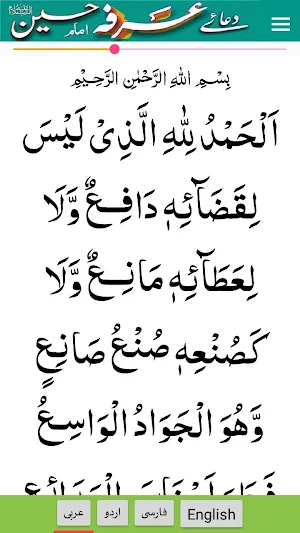 دعائے عرفہ امام حسین
بِسْمِ اللهِ الرَّحْمٰنِ الرَّحِيْمِ
اَلْحَمْدُ لِلّٰهِ الَّذِىْ لَيْسَ
لِقَضَآئِهٖ دَافِعٌ وَّلَا
لِعَطَآئِهٖ مَانِعٌ وَّلَا
كَصُنْعِهٖ صُنْعُ صَانِعٍ
وَّهُوَ الْجَوَادُ الْوَاسِعُ
عربی اردو فارسی English